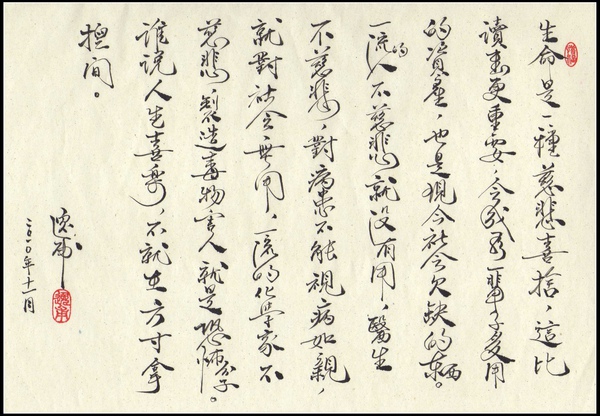 生命是一種慈悲喜捨，這比
讀書更重要，一輩子受用
的資產，也是現今社會欠缺的东西。
一流的人不慈悲就没有用，醫生
不慈悲，對病患不能視病如親，
就對社會無用，一流的化學家不
慈悲，製造毒物害人就是恐怖份子。
谁说人生喜樂，不就在方寸拿
间。
年十一月